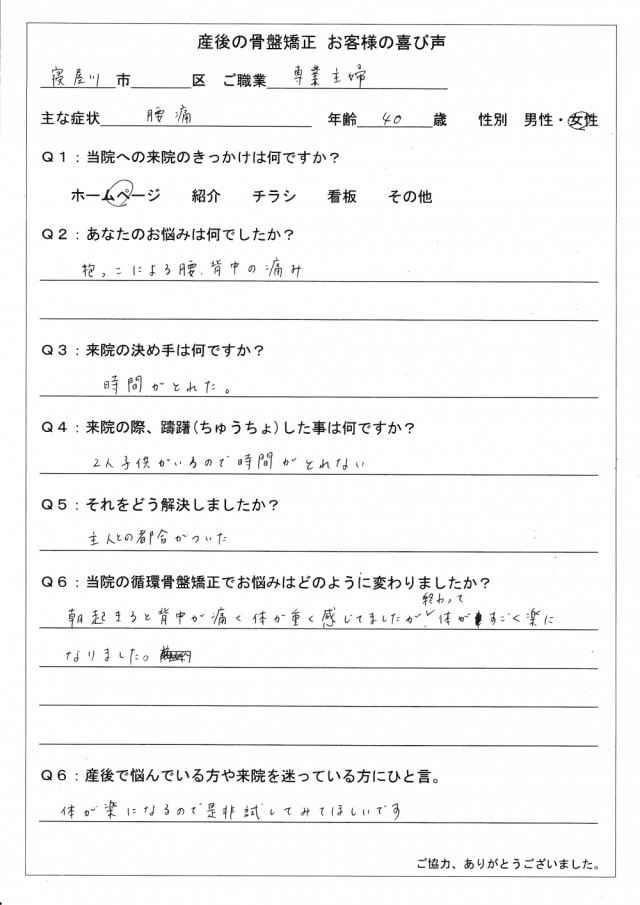 産後の骨盤矯正 お客様の喜び声
寝屋川市 区 ご職業 専業主婦
主な症状 腰痛 年齢 40 歳 性別 男性・女性
Q1：当院への来院のきっかけは何ですか？
ホームページ 紹介 チラシ 看板 その他
Q2：あなたのお悩みは何でしたか？
抱っこによる腰、背中の痛み
Q3：来院の決め手は何ですか？
時間がとれた。
Q4：来院の際、躊躇(ちゅうちょ)した事は何ですか？
2人子供がいるので時間がとれない
Q5：それをどう解決しましたか？
主人との都合がついた
Q6：当院の循環骨盤矯正でお悩みはどのように変わりましたか？
終わって
朝起きると背中が痛く体が重く感じてましたが、体がすごく楽に
なりました。
Q6：産後で悩んでいる方や来院を迷っている方にひと言。
体が楽になるので是非試してみてほしいです
ご協力、ありがとうございました。